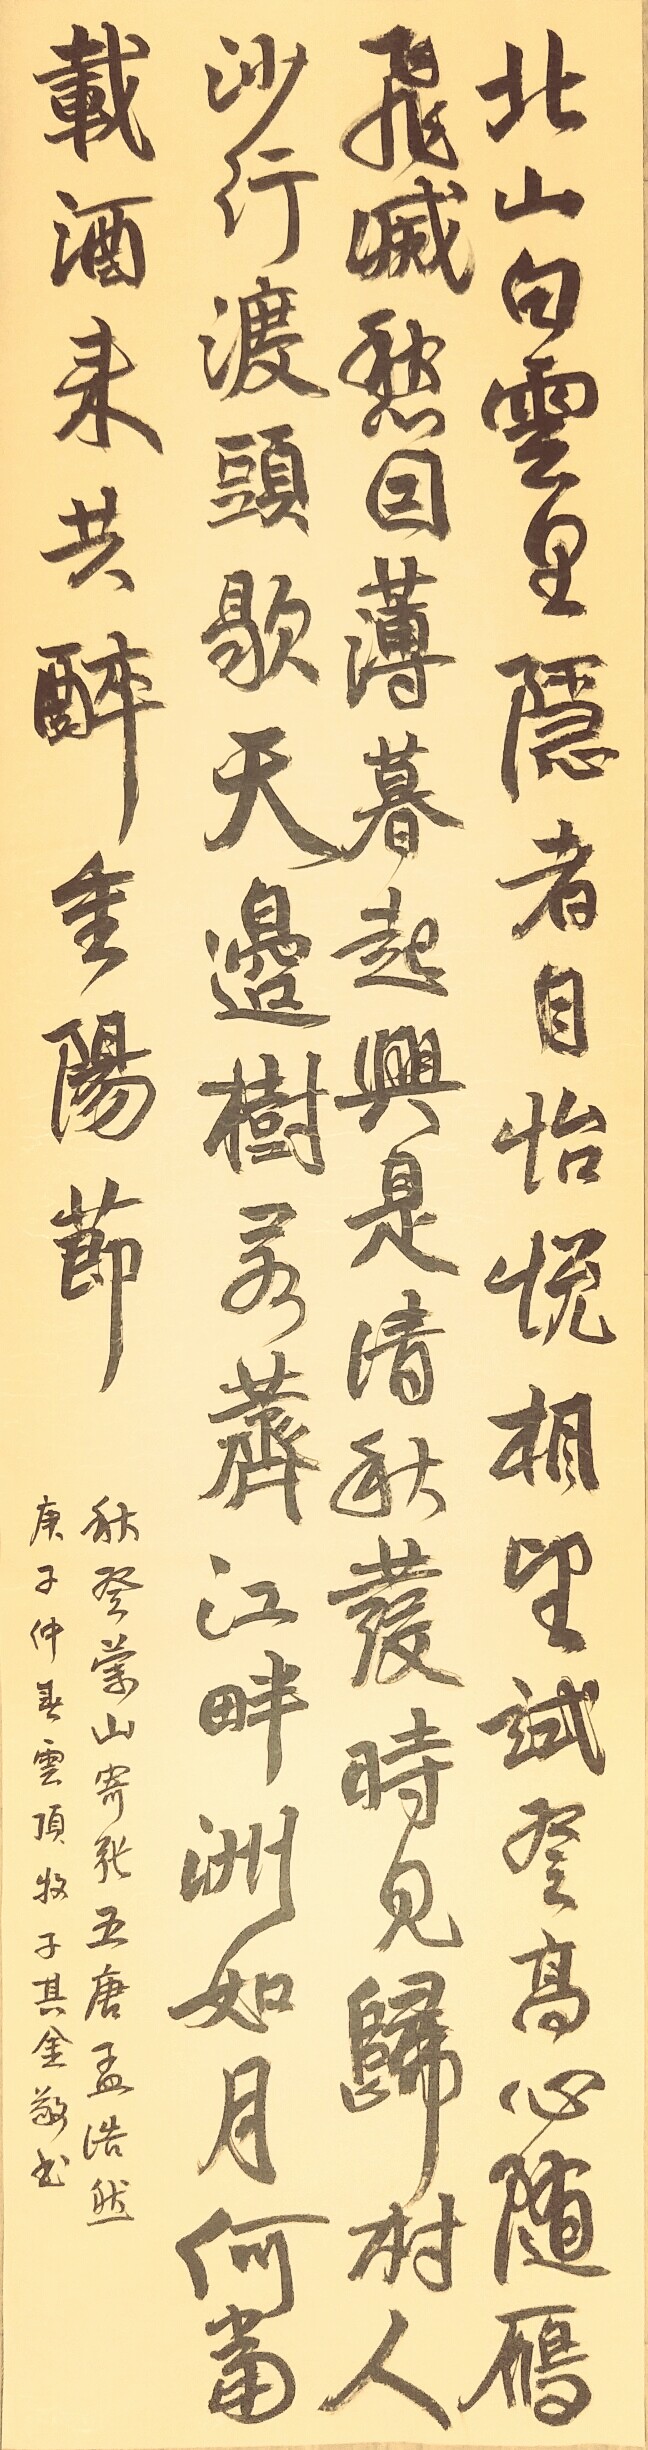 北山白雲里隱者自怡悅相望試登高心随雁
飛滅愁因薄暮起興是清秋發時見歸村人
沙行渡頭歇天邊樹若薺江畔洲如月何當
載酒来共醉重陽節
秋登蘭山寄張五唐孟浩然
庚子仲春雲頂牧子其金敬书